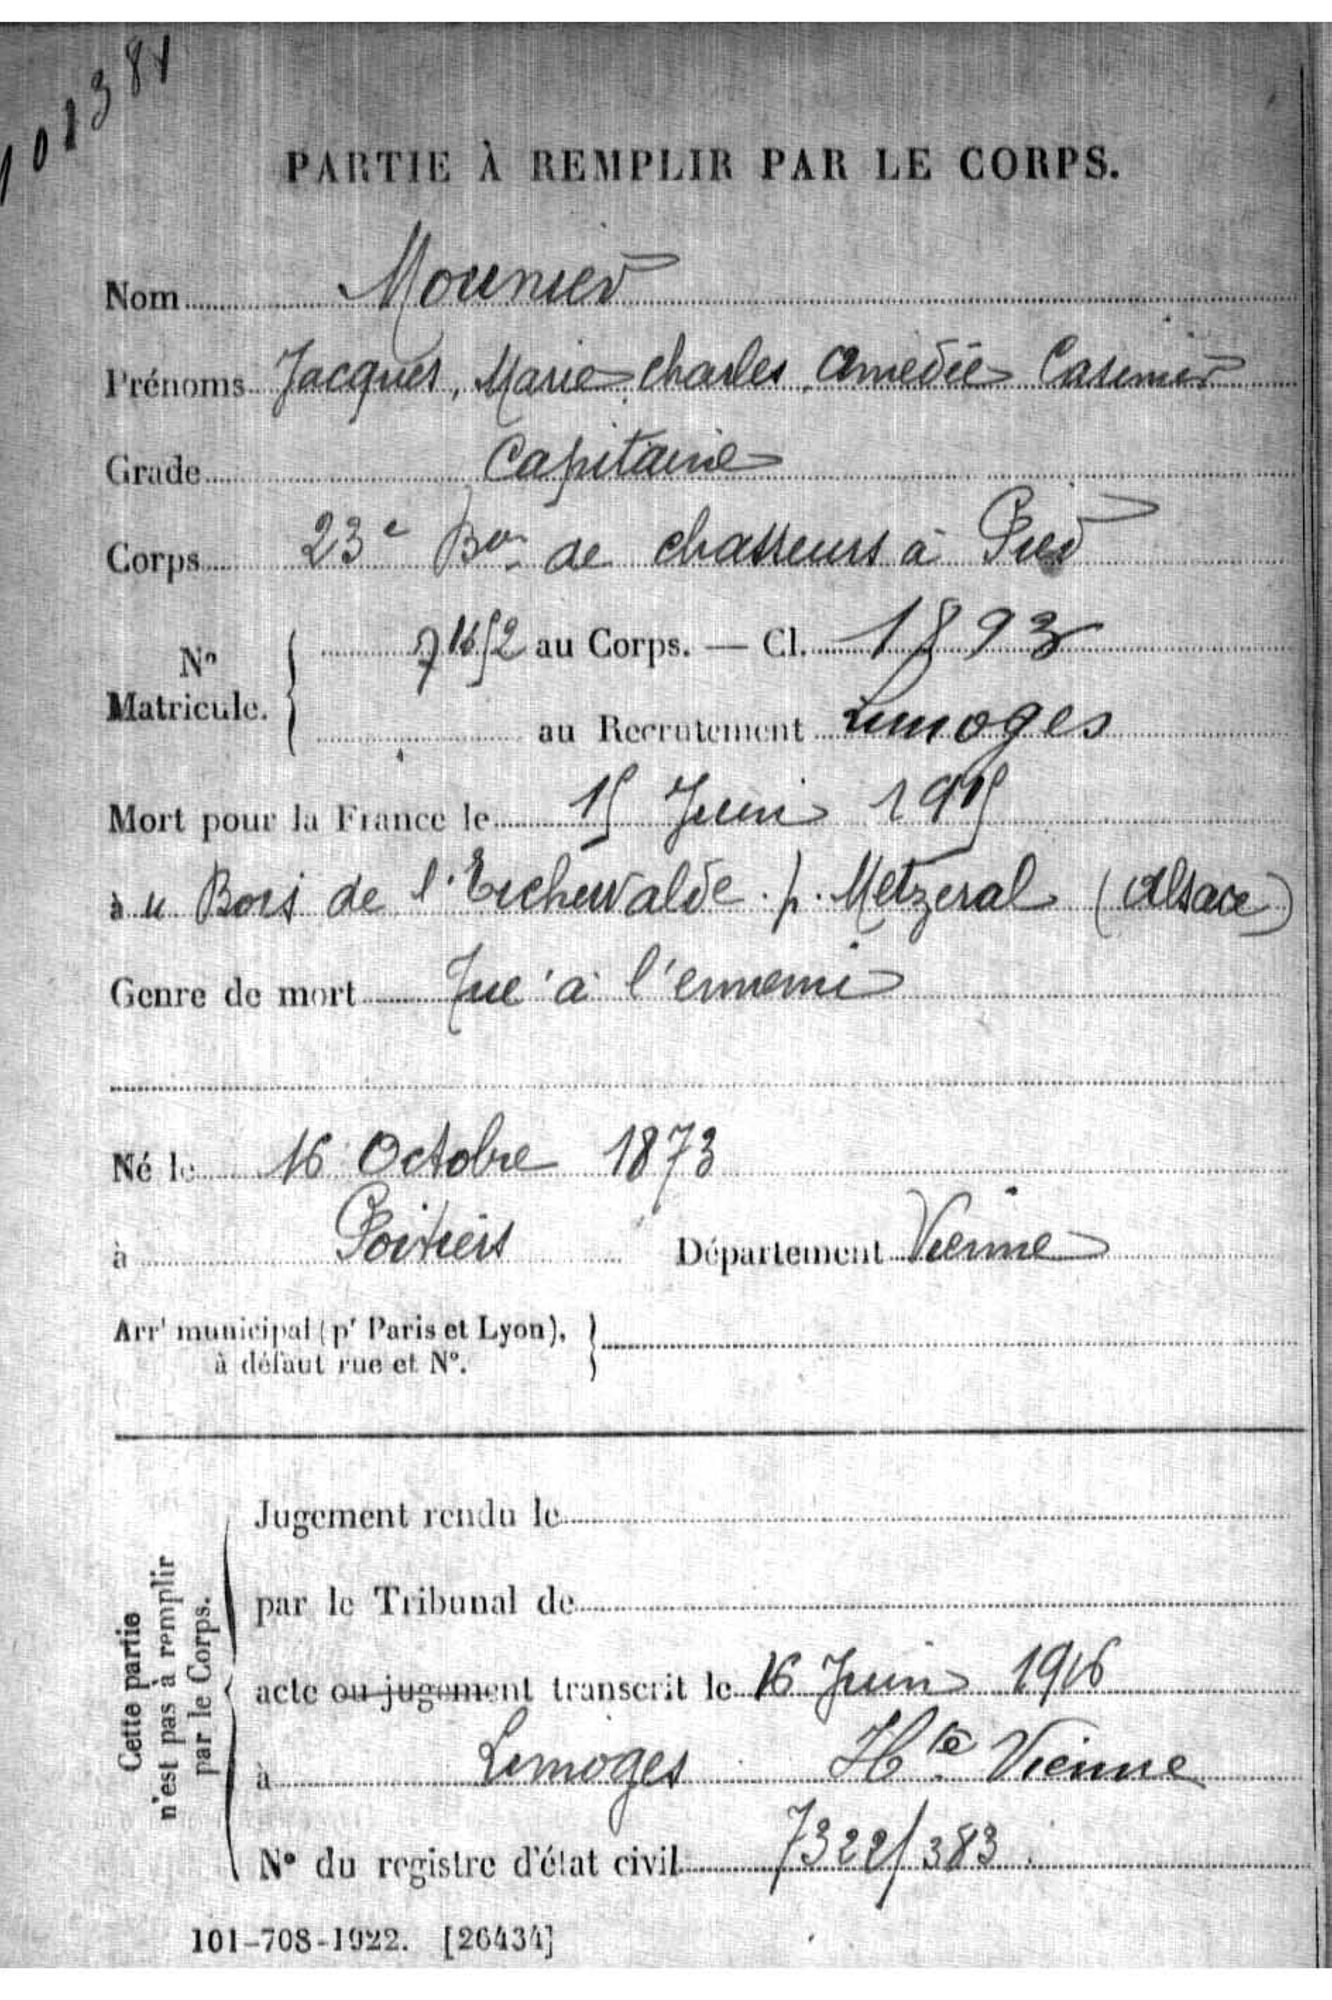 101381
PARTIE À REMPLIR PAR LE CORPS.
Nom Mounier
Prénoms Jacques, Marie, Charles, Amedée Casimir
Grade Capitaine
Corps 23e Bon de chasseurs à Pied
No Matricule. au Corps. — Cl. 1893
au Recrutement Limoges
Mort pour la France le 15 Juin 1915
à u Bois de l'Eichenvalde p. Metzeral (Alsace)
Genre de mort Tué à l'ennemi
Né le 16 Octobre 1873
à Poitiers Département Vienne
Arrt municipal (pr Paris et Lyon),
à défaut rue et N°.
Cette partie
n'est pas à remplir
par le Corps.
Jugement rendu le
par le Tribunal de
acte ou jugement transcrit le 16 Juin 1916
à Limoges Hte Vienne
N° du registre d'état civil 7322/383
101-708-1922. [26434]